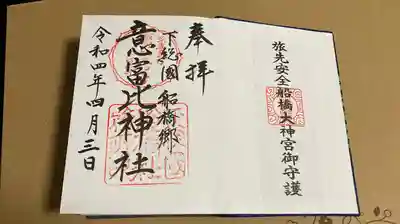 旅先安全船橋大神宮御守護
奉拝
下総國船橋郷
意富比神社
令和四年四月三日